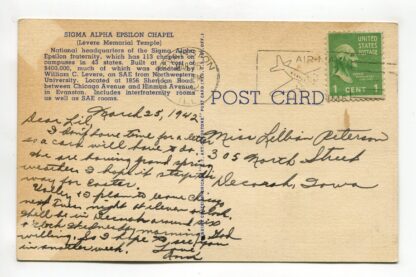 SIGMA ALPHA EPSILON CHAPEL
(Levere Memorial Temple)
National headquarters of the Sigma Alpha
Epsilon fraternity, which has 113 chapters on
campuses in 45 states. Built at a cost of
$400,000, much of which was donated by
William C. Levere, an SAE from Northwestern
University. Located at 1856 Sheridan Road,
between Chicago Avenue and Hinman Avenue,
in Evanston. Includes interfraternity rooms as
well as SAE rooms.
AIR
POST CARD
UNITED STATES POSTAGE
1 CENT 1
March 25, 1942
Dear Lil,
I don't have time for a letter
so a card will have to do.
We are having grand spring
weather. I hope it stays that
way for Easter.
I plan to leave Chicago
next night at eleven o'clock
I'll be in Decorah around six
o'clock Wednesday morning
willing. So I hope to see you
in another week.
Love
Miss Lillian Peterson
305 North Street
Decorah, Iowa